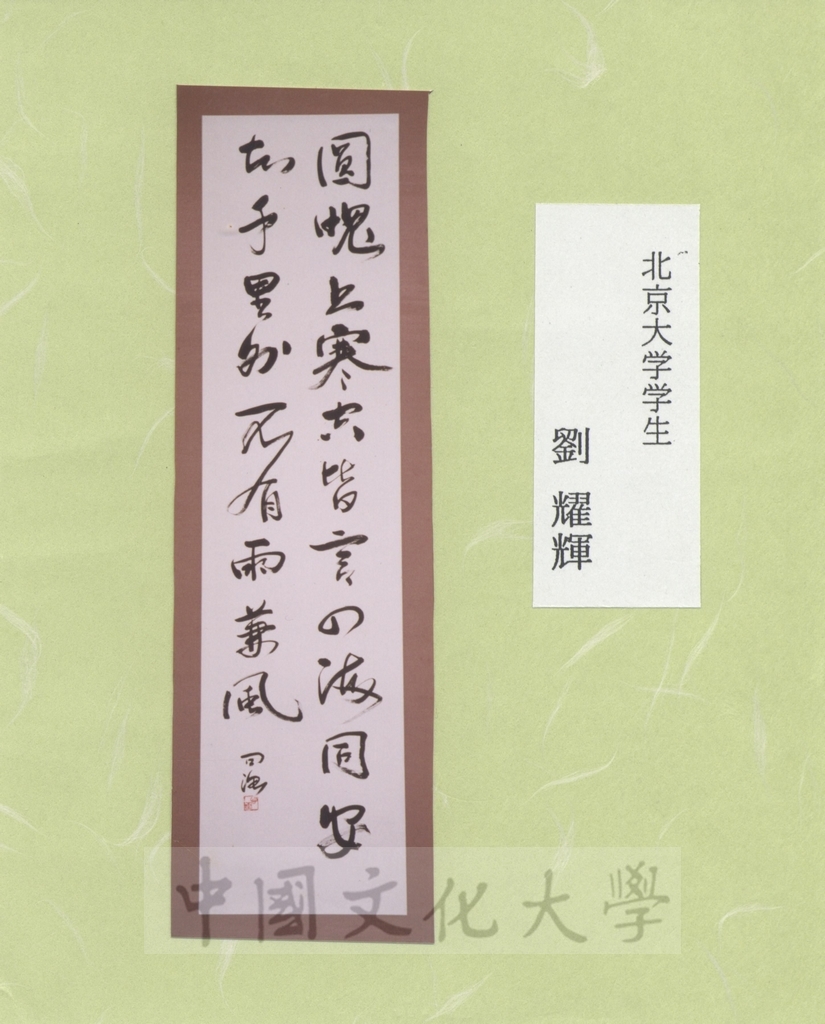 圓魄上寒空皆言四海同安
知千里外不有雨兼風
北京大学学生
劉 耀輝
中國文化大學